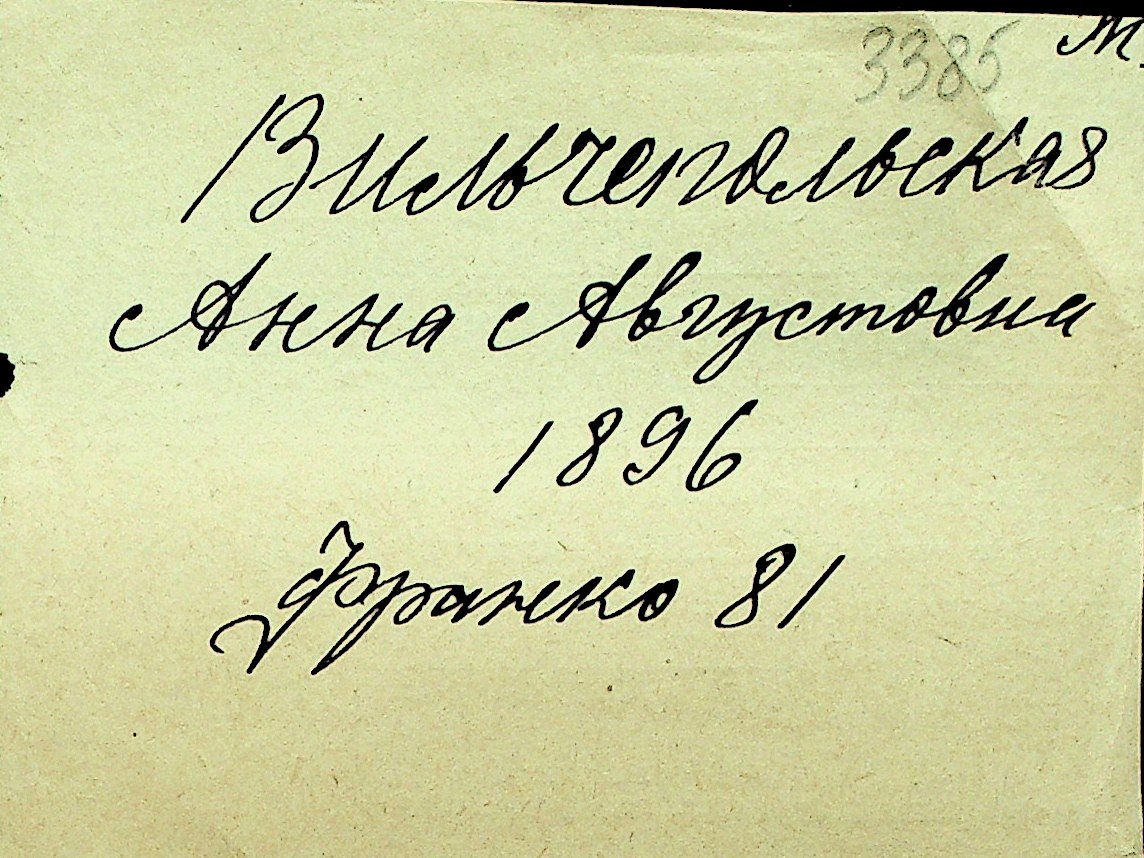 3385
Вильчепольская
Анна Августовна
1896
Франко 81